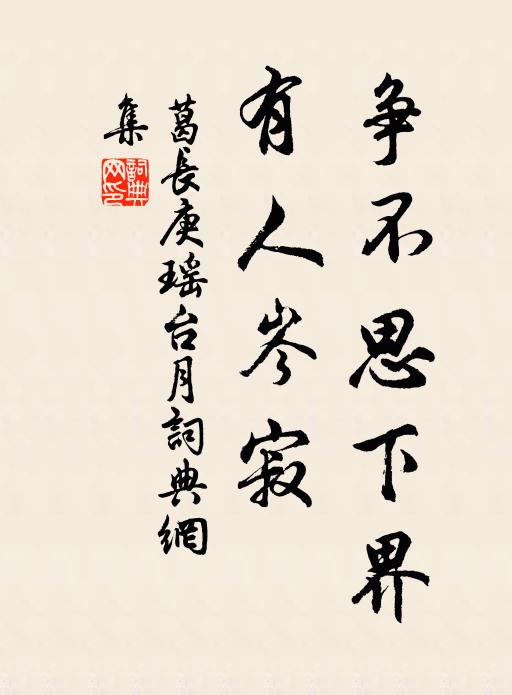 争不思下界
有人岑寂
葛長庚瑶台月詞典網
集
詞典
网印